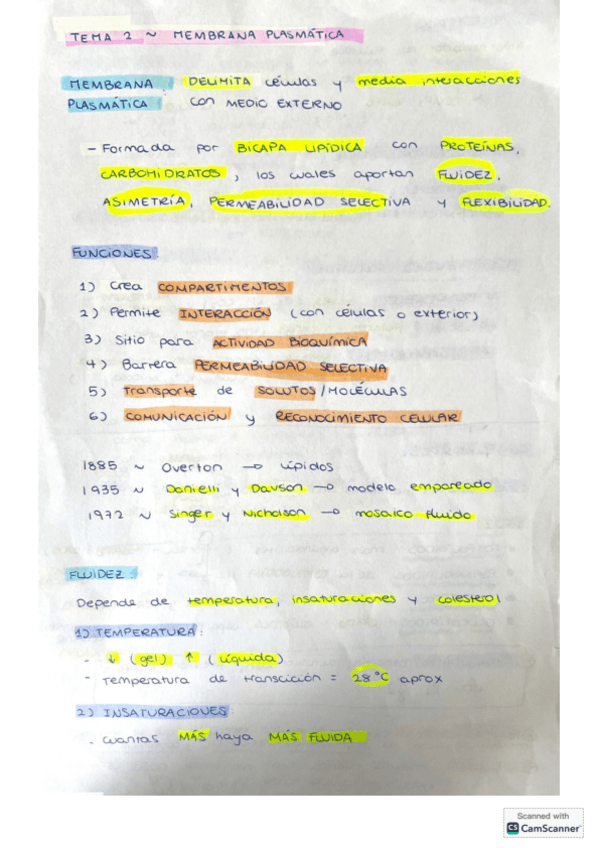 TEMA 2 ~ MEMBRANA PLASMÁTICA
MEMBRANA PLASMÁTICA : DELIMITA células y media interacciones
con MEDIO EXTERNO
- Formada por BICAPA LIPÍDICA con PROTEÍNAS,
CARBOHIDRATOS, los cuales aportan FLUIDEZ,
ASIMETRÍA, PERMEABILIDAD SELECTIVA y FLEXIBILIDAD.
FUNCIONES:
1) Crea COMPARTIMENTOS
2) Permite INTERACCIÓN (con células o exterior)
3) Sitio para ACTIVIDAD BIOQUÍMICA
4) Barrera PERMEABILIDAD SELECTIVA
5) Transporte de SOLUTOS/MOLÉCULAS
6) COMUNICACIÓN y RECONOCIMIENTO CELULAR
1885 ~ Overton → Lípidos
1935 ~ Danielli y Davson → modelo empareado
1972 ~ Singer y Nicholson → mosaico fluido
FLUIDEZ:
Depende de temperatura, insaturaciones y colesterol
1) TEMPERATURA:
- ↓ (gel) ↑ (líquida)
- Temperatura de transcición = 28°C aprox
2) INSATURACIONES:
. cuantas MÁS haya MÁS FLUIDA
Scanned with
CS CamScanner